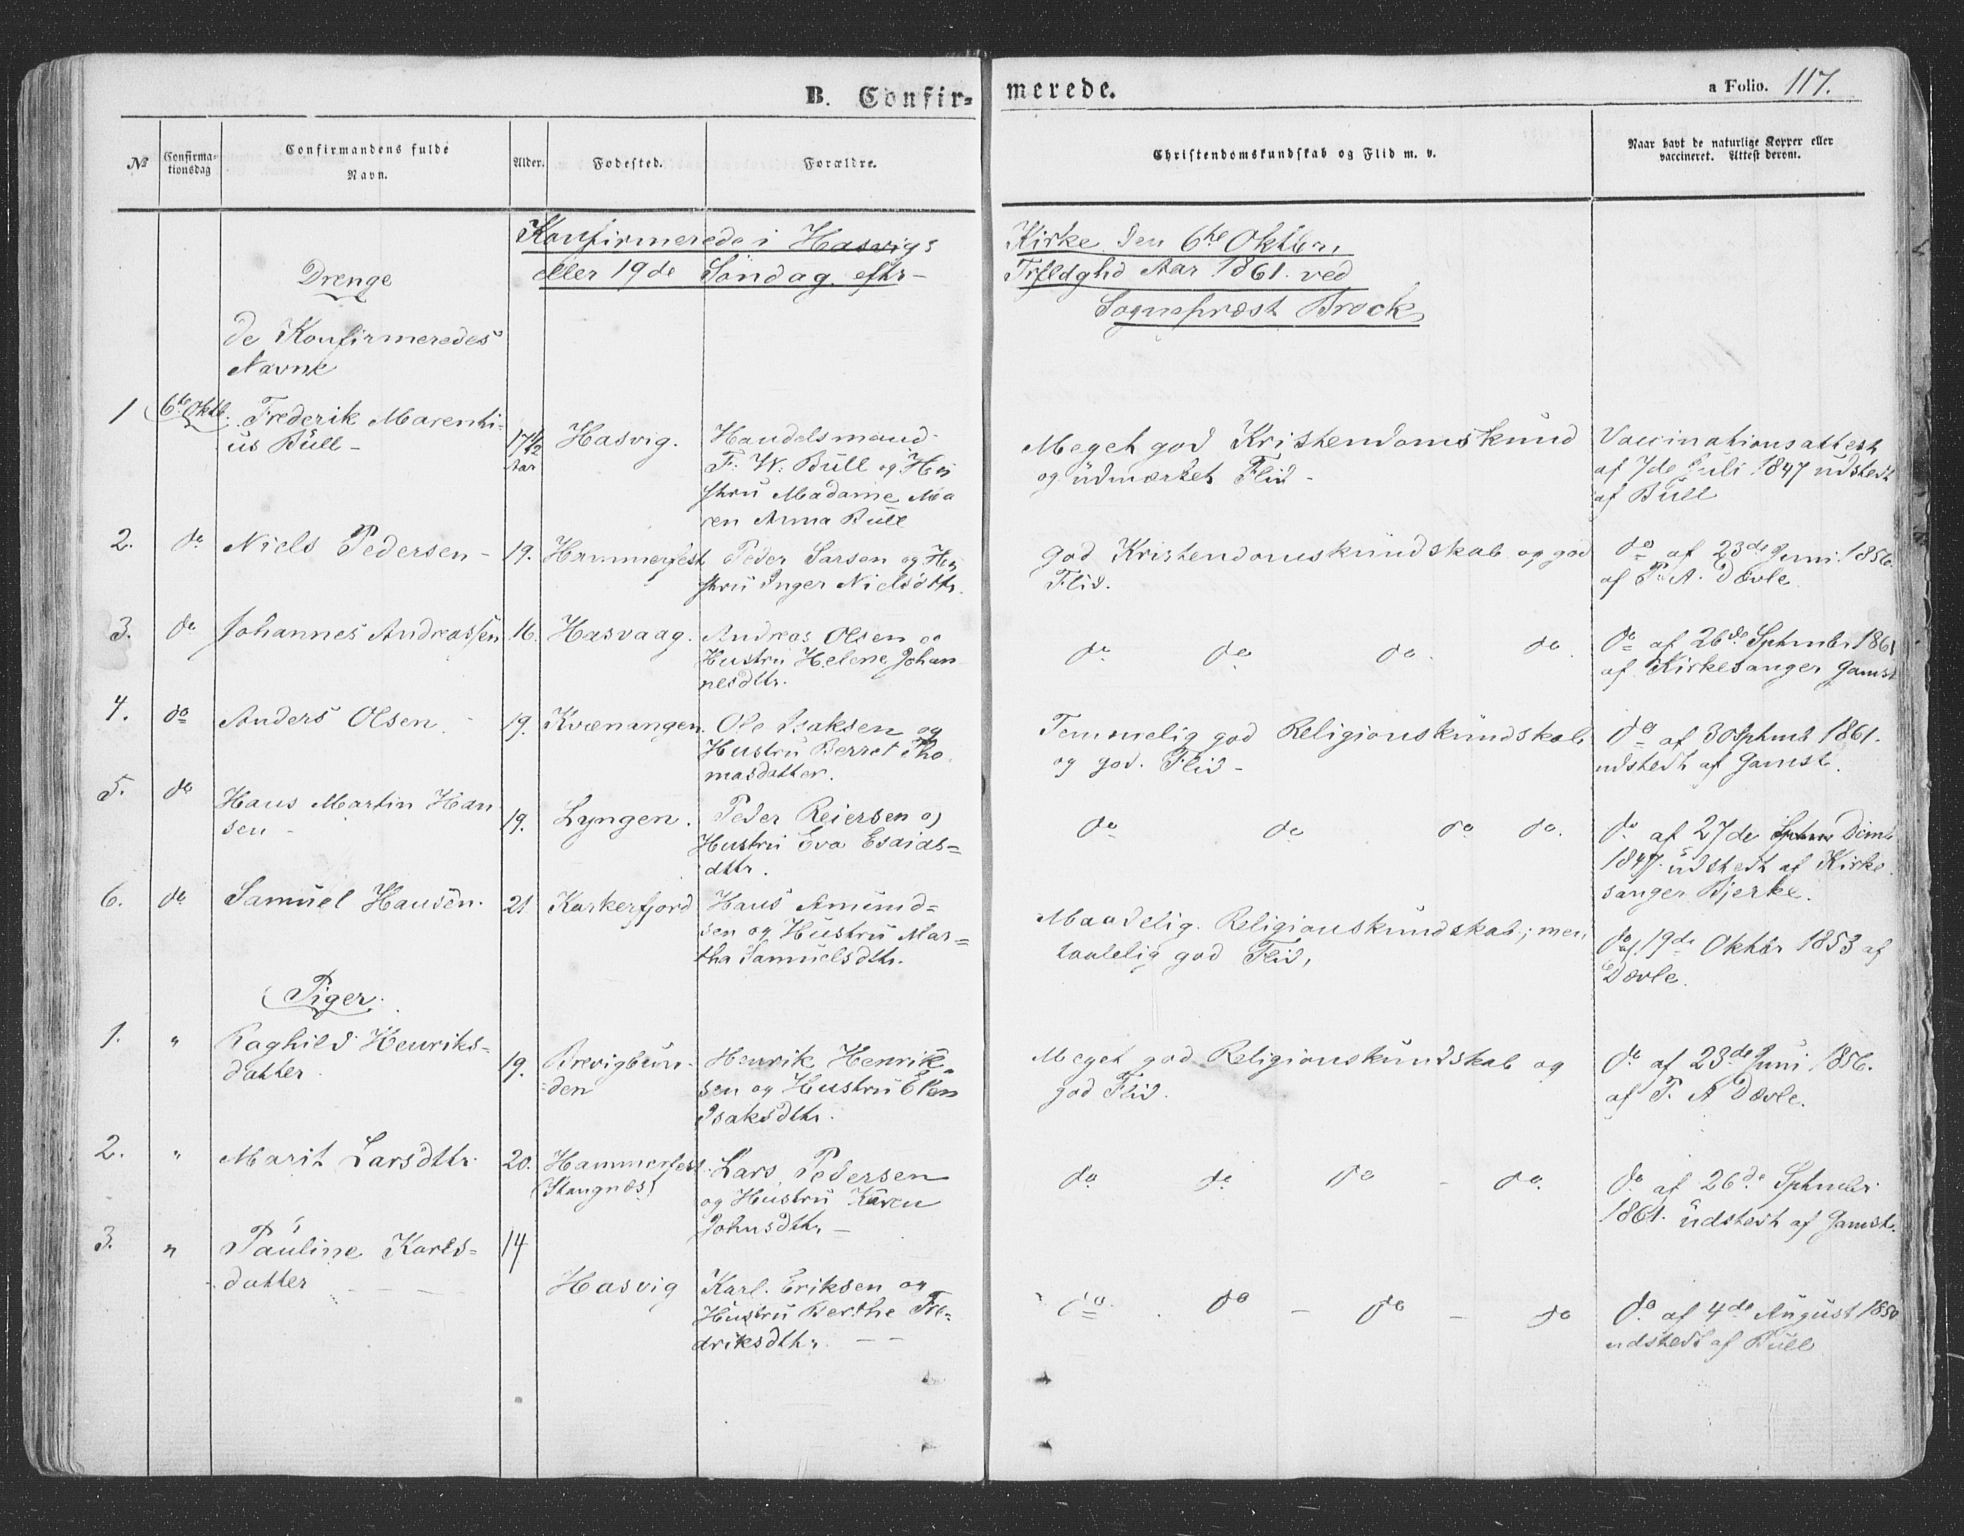 B. Confirmerede.
a Folio. 117.
No
Confirmationsdag
Confirmandens fulde Navn.
Alder.
Fødested.
Forældre.
Christendomskundskab og Flid m. v.
Naar havt de naturlige Kopper eller vaccineret. Attest derom.
Konfirmerede i Hasvigs Kirke den 6te Oktbr,
eller 19de Søndag eftr Trfldghd Aar 1861. ved
Sognepræst Brock
Drenge
de Konfirmeredes
Navne
1 6te Oktb. Frederik Marenti-
us Büll -
17 1/2 Aar
Hasvig.
Handelsmand
F. W. Büll og Hu
stru Madame Ma
ren Anna Büll
Meget god Kristendomskund
og üdmærket Flid -
Vaccinationsattest
af 7de Juli 1847 udstedt
af Büll
2. do Niels Pedersen - 19. Hammerfest
Peder Larsen og Hu
stru Inger Nielsdtr.
God Kristendomskündskab og god
Flid.
do af 23de Juni 1856.
af P. A. Dævle.
3. do Johannes Andreassen 16. Hasvaag.
Andreas Olsen og
Hustru Helene Johan
nesdtr.
do do do. do.
do af 26de Sptmbr 1861
af Kirkesanger Gamst
4. do Anders Olsen 19. Kvænangen.
Ole Isaksen og
Hustru Berret Tho
masdatter.
Temmelig god Religionskündskab
og god. Flid -
do af 30 Sptmb 1861.
udstedt af Gamst.
5. do Hans Martin Han
sen - 19. Lyngen.
Peder Reiersen og
Hustru Eva Esaias=
dtr.
do do do do.
do af 27de Dcmb
1847. üdstedt af Kirke
sanger Bjerke.
6. do Samüel Hansen. 21 Karkerfjord
Hans Amünd=
sen og Hüstrü Mar=
tha Samuelsdtr.
Maadelig. Religionskundskab; men
taalelig god Flid,
do af 19de Oktbr 1853 af
Dævle.
Piger.
1. " Raghild Henriks=
datter. 19. Brevigbun=
=den
Henrik Henrik=
sen og Hustru Elen
Isaksdtr.
Meget god Religionskündskab og
god Flid.
do af 23de Juni 1856.
af P. A Dævle.
2. " Marit Larsdtr. 20. Hammerfest
(Stangnæs)
Lars Pedersen
og Hustrü Karen
Johnsdtr -
do do do - do.
do af 26de Sptmbr
1861. üdstedt af Gamst.
3. " Paüline Karls=
datter 14
Hasvig
Karl. Eriksen og
Hustrü Berthe Fre=
driksdtr. - -
do. do - do - do
do af 4de Aügüst 1850
udstedt af Büll